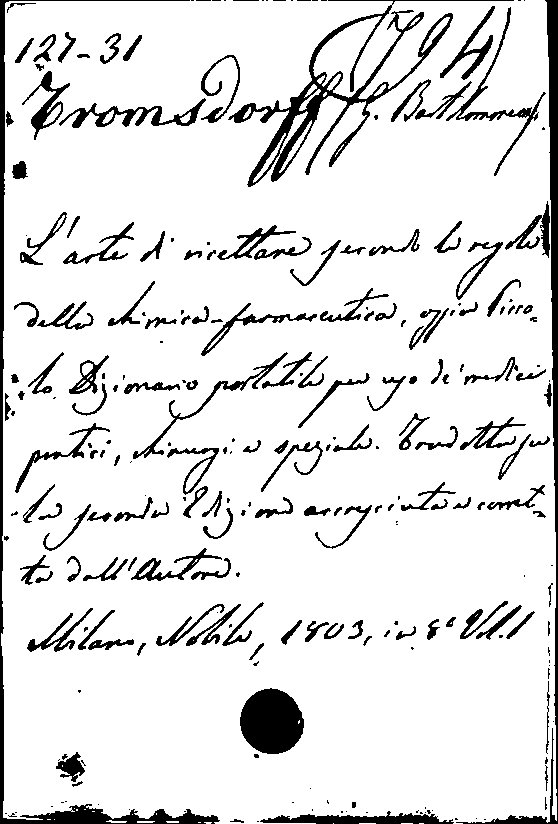 127-31
(794)
Tromsdorff (G. Bartolommeo)
L'arte di ricettare secondo le regole
della chimica-farmaceutica, ossia Picco=
lo Dizionario portatile per uso de' medici
pratici, chirurgi e speziali. Tradotta su
la seconda Edizione accresciuta e corret=
ta dall'Autore.
Milano, Nobile, 1803, in 8° Vol. 1